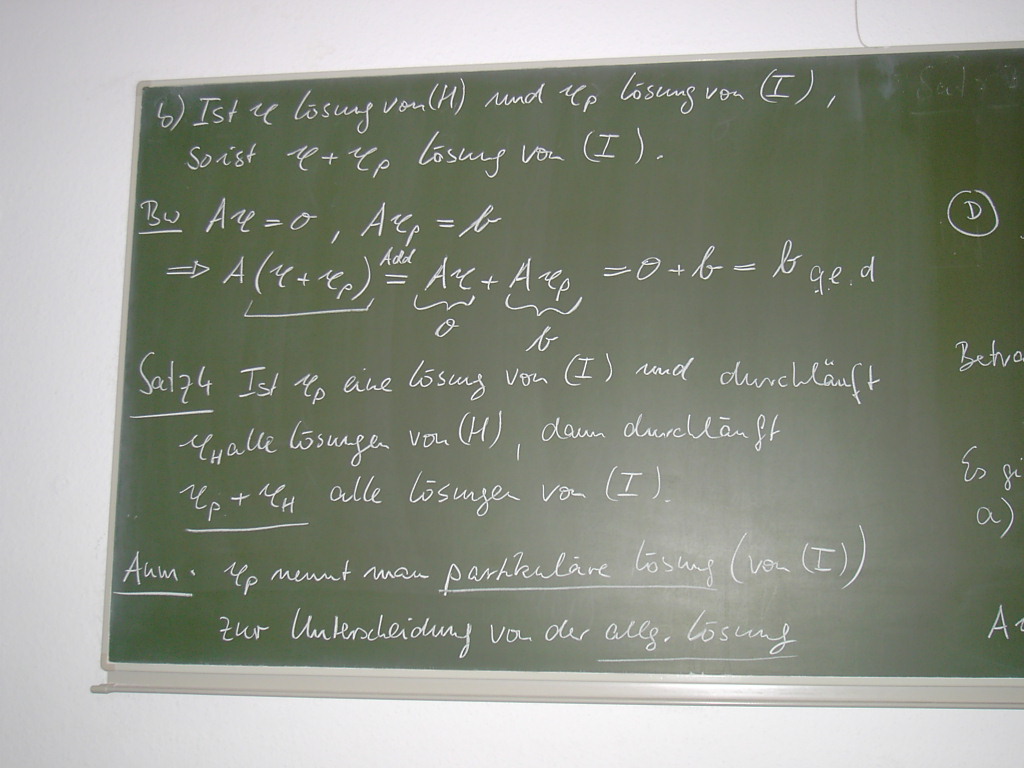 b) Ist 𝔵 Lösung von (H) und 𝔵p Lösung von (I),
So ist 𝔵 + 𝔵p Lösung von (I).
Bw A𝔵 = 0, A𝔵p = b
⇒ A(𝔵 + 𝔵p) =Add A𝔵 + A𝔵p = 0 + b = b q.e.d
0 b
Satz 4 Ist 𝔵p eine Lösung von (I) und durchläuft
𝔵H alle Lösungen von (H), dann durchläuft
𝔵p + 𝔵H alle Lösungen von (I).
Anm. 𝔵p nennt man partikuläre Lösung (von (I))
zur Unterscheidung von der allg. Lösung
Satz
D
Betra
Es gi
a)